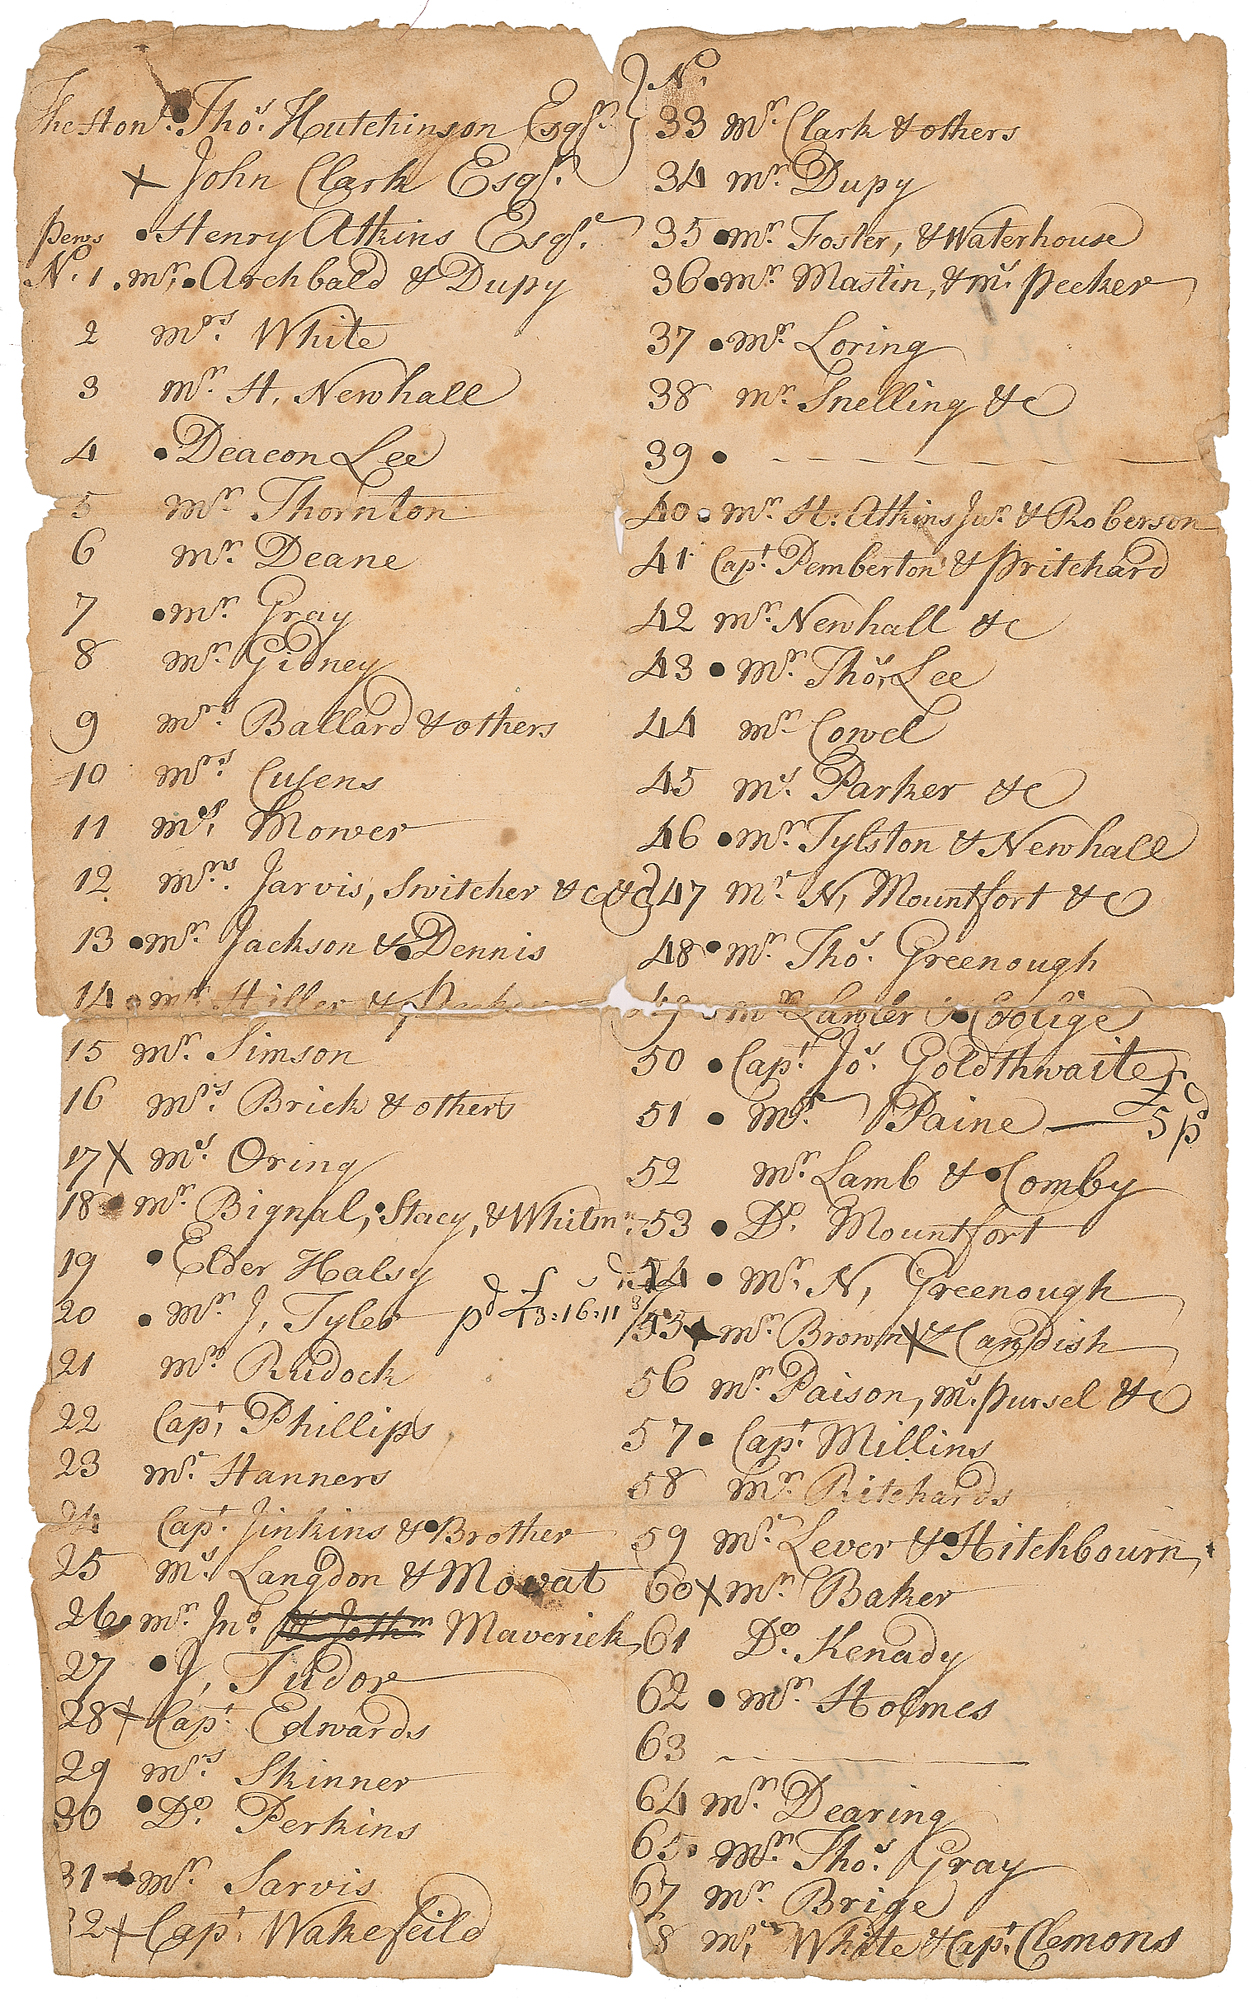 The Hon.l Tho.s Hutchinson Esq.r
x John Clark Esq.r
Pews • Henry Atkins Esq.r
N. 1 . mr. • Archbald & Dupy
2 Mrs. White
3 Mr. H. Newhall
4 • Deacon Lee
5 Mr. Thornton
6 Mr. Deane
7 • Mr. Gray
8 Mr. Gidney
9 Mr.s Ballard & others
10 Mrs. Cusens
11 Ms. Mower
12 Mrs. Jarvis, Switcher &c &c
13 • Mr. Jackson & • Dennis
14 • Mr. Hiller &
15 Mr. Simson
16 Mrs. Brick & others
17 x Ms. Oring
18 • Mr. Bignal, • Stacy, & Whitmn
19 • Elder Halsy
20 • Mr. J, Tyler pd £43:16:11
21 Mr. Rudock
22 Capt. Phillips
23 Mr. Hanners
24 Capt. Jinkins & • Brother
25 Ms. Langdon & Mowat
26 • Mr. Jno. & Jothm Maverick
27 • J, Tudor
28 x Capt. Edwards
29 Mrs. Skinner
30 • Do. Perkins
31 • Mr. Sarvis
32 x Capt. Wakefeild
N.
33 Mr. Clark & others
34 Mr. Dupy
35 • Mr. Foster, & Waterhouse
36 • Mr. Mastin, & Ms. Pecker
37 • Mr. Loring
38 Mr. Snelling &c
39 • — — — — —
40 • Mr. H: Atkins Jur. & Roberson
41 Capt. Pemberton & Pritchard
42 Mr. Newhall &c
43 • Mr. Thos. Lee
44 Mr. Cowel
45 Ms. Parker &c
46 • Mr. Tylston & Newhall
47 Mr. N, Mountfort &c
48 • Mr. Thos. Greenough
49 • Mr. Lawler & • Coolige
50 • Capt. Jos. Goldthwaite
51 • Mr. Paine — £5 pd
52 Mr. Lamb & • Comby
53 • Do. Mountfort
54 • Mr. N, Greenough
55 • Mr. Brown x & Candish
56 Mr. Paison, Ms. Pursel &c
57 • Capt. Millins
58 Mr. Ritchards
59 Mr. Lever & • Hitchbourn
60 x Mr. Baker
61 Do. Kenady
62 • Mr. Holmes
63 — — —
64 Mr. Dearing
65. Mr. Thos. Gray
67 Mr. Brige
8 Mr. White & Capt. Clemons